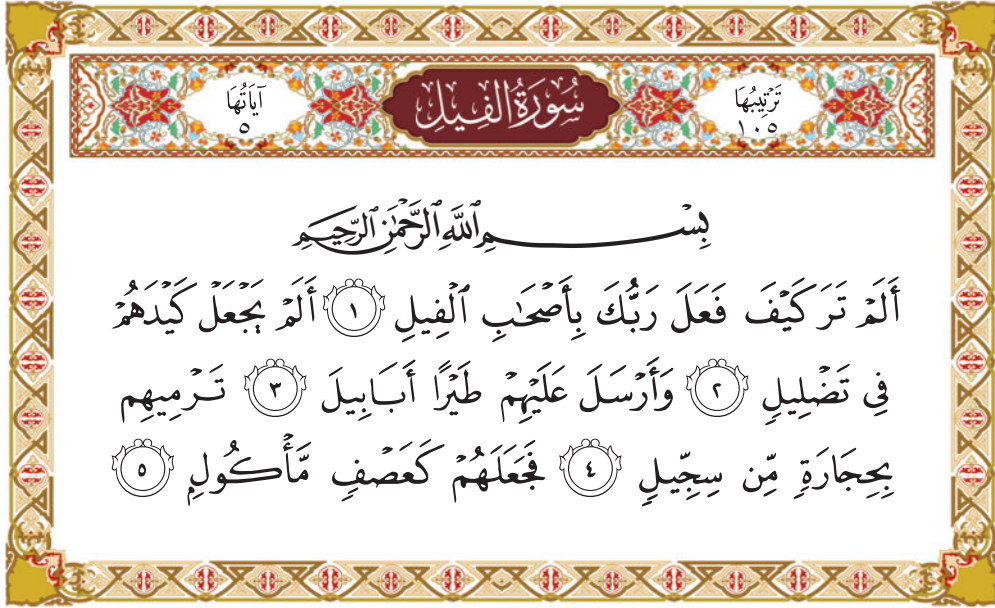 تَرْتِيبُهَا
١٠٥
سُورَةُ الفِيلِ
آيَاتُهَا
٥
بِسْمِ ٱللَّهِ ٱلرَّحْمَٰنِ ٱلرَّحِيمِ
أَلَمْ تَرَ كَيْفَ فَعَلَ رَبُّكَ بِأَصْحَٰبِ ٱلْفِيلِ ١ أَلَمْ يَجْعَلْ كَيْدَهُمْ
فِى تَضْلِيلٍ ٢ وَأَرْسَلَ عَلَيْهِمْ طَيْرًا أَبَابِيلَ ٣ تَرْمِيهِم
بِحِجَارَةٍ مِّن سِجِّيلٍ ٤ فَجَعَلَهُمْ كَعَصْفٍ مَّأْكُولٍ ٥